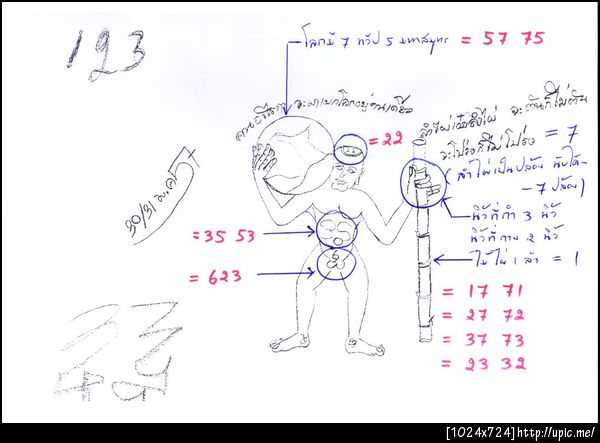 123
โลกมี 7 ทวีป 5 มหาสมุทร = 57 75
จะมาแบกโลกอยู่คนเดียว
จะตันก็ไม่ตัน
จะโปร่งก็ไม่โปร่ง = 7
= 22
(ลำไผ่เป็นปล้อง นับได้
- 7 ปล้อง)
30/31 ต.ค. 57
นิ้วที่กำ 3 นิ้ว
นิ้วที่กาง 2 นิ้ว
ไม้ไผ่ 1 ลำ = 1
= 35 53
= 623
= 17 71
= 27 72
= 37 73
= 23 32
[1024x724]http://upic.me/